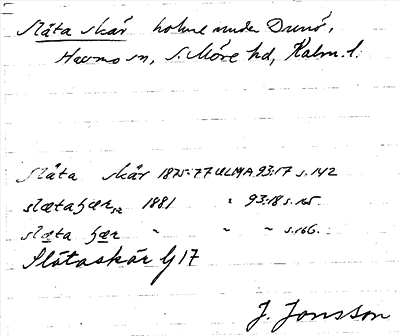 Släta skär holme under Drunö,
Hagemo sn, S. Möre hd, Kalm. l.
Släta skär 1875-77 ULMA 93:17 s. 142
slætaʃær 1881 " 93:18 s. 165
slæta ʃær " " " s. 166.
Slätaskär G 17
J. Jonsson